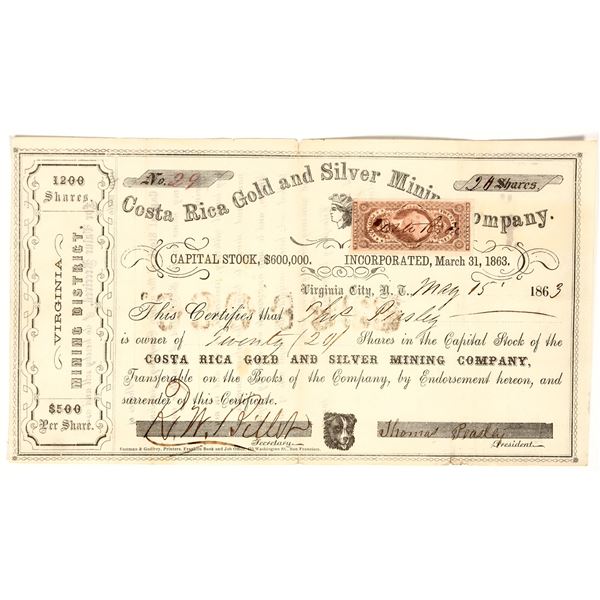 1200
Shares.
VIRGINIA
MINING DISTRICT.
$500
Per Share.
No. 29
24 Shares.
Costa Rica Gold and Silver Mining Company.
CAPITAL STOCK, $600,000. INCORPORATED, March 31, 1863.
Virginia City, N. T. May 15 1863
This Certifies that
is owner of Twenty Shares in the Capital Stock of the
COSTA RICA GOLD AND SILVER MINING COMPANY,
Transferable on the Books of the Company, by Endorsement hereon, and
surrender of this Certificate.
Secretary.
Thomas
President.
Eastman & Godfrey, Printers, Franklin Book and Job Office, Washington St., San Francisco.